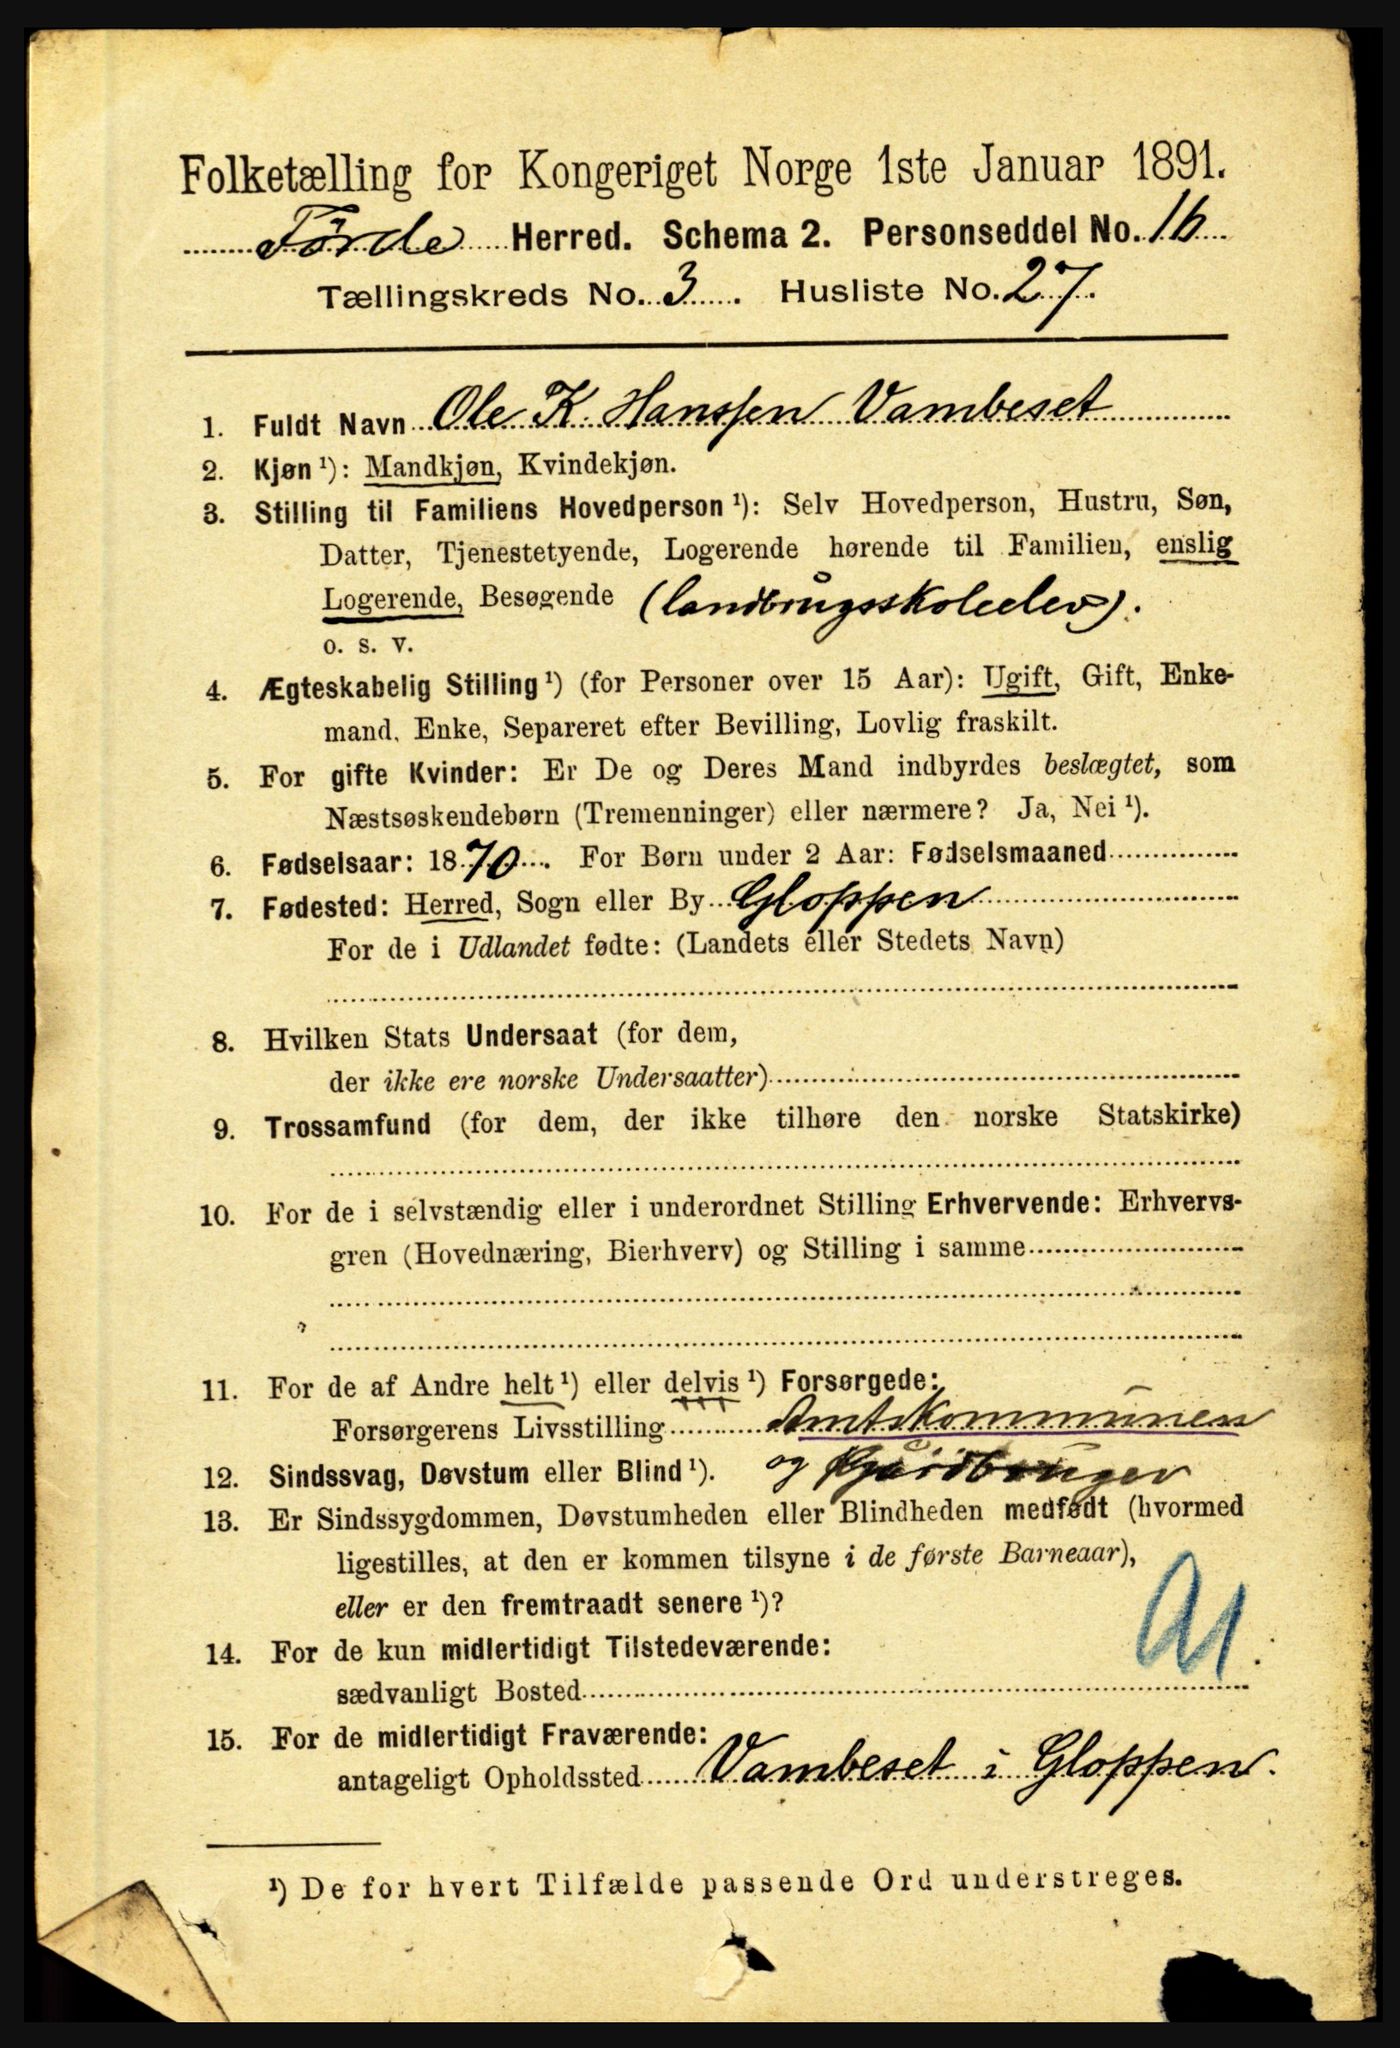 Folketælling for Kongeriget Norge 1ste Januar 1891.
Förde Herred. Schema 2. Personseddel No. 16
Tællingskreds No. 3. Husliste No. 27.
1. Fuldt Navn Ole K. Hanssen Vambeset
2. Kjøn ¹): Mandkjøn, Kvindekjøn.
3. Stilling til Familiens Hovedperson ¹): Selv Hovedperson, Hustru, Søn,
Datter, Tjenestetyende, Logerende hørende til Familien, enslig
Logerende, Besøgende (landbrugsskoleelev).
o. s. v.
4. Ægteskabelig Stilling ¹) (for Personer over 15 Aar): Ugift, Gift, Enke-
mand, Enke, Separeret efter Bevilling, Lovlig fraskilt.
5. For gifte Kvinder: Er De og Deres Mand indbyrdes beslægtet, som
Næstsøskendebørn (Tremenninger) eller nærmere? Ja, Nei ¹).
6. Fødselsaar: 1870. For Børn under 2 Aar: Fødselsmaaned
7. Fødested: Herred, Sogn eller By Gloppen
For de i Udlandet fødte: (Landets eller Stedets Navn)
8. Hvilken Stats Undersaat (for dem,
der ikke ere norske Undersaatter)
9. Trossamfund (for dem, der ikke tilhøre den norske Statskirke)
10. For de i selvstændig eller i underordnet Stilling Erhvervende: Erhvervs-
gren (Hovednæring, Bierhverv) og Stilling i samme
11. For de af Andre helt ¹) eller delvis ¹) Forsørgede:
Forsørgerens Livsstilling Amtskommunen
12. Sindssvag, Døvstum eller Blind ¹). og Gårdbruger
13. Er Sindssygdommen, Døvstumheden eller Blindheden medfødt (hvormed
ligestilles, at den er kommen tilsyne i de første Barneaar),
eller er den fremtraadt senere ¹)?
14. For de kun midlertidigt Tilstedeværende:
sædvanligt Bosted
15. For de midlertidigt Fraværende:
antageligt Opholdssted Vambeset i Gloppen.
¹) De for hvert Tilfælde passende Ord understreges.